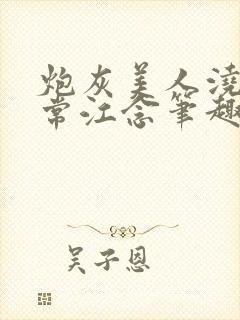 炮灰美人浇
常江念笔趣
吴子恩